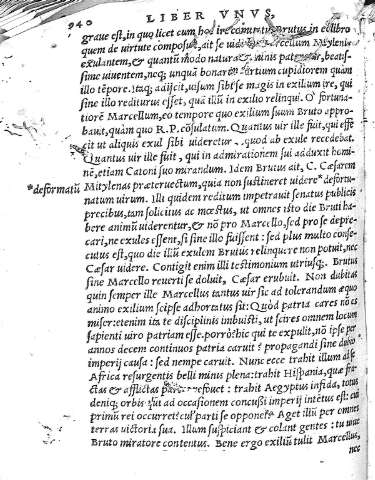 940 LIBER VNVS,
graue est, in quo licet cum hoc ire Brutus in eo libro
quem de uirtute composuit, ait se uidisse Marcellum Mitylenis
exulantem, & quantũ modo natura hominis pateretur, beatis-
sime uiuentem, neq; unquã bonarum artium cupidiorem quàm
illo tẽpore. Itaq; adijcit, uisum sibi se magis in exilium ire, qui
sine illo rediturus esset, quã illũ in exilio relinqui. O fortuna-
tiorẽ Marcellum, eo tempore quo exilium suum Bruto appro-
bauit, quàm quo R.P. cõsulatum. Quantus uir ille fuit, qui effe-
cit ut aliquis exul sibi uideretur quod ab exule recedebat.
Quantus uir ille fuit, qui in admirationem sui adduxit homi-
nẽ, etiam Catoni suo mirandum. Idem Brutus ait, C. Cæsarem
*deformatũ Mitylenas præteruectum, quia non sustineret uidere *defor-
natum uirum. Illi quidem reditum impetrauit senatus publicis
precibus, tam solicitus ac mœstus, ut omnes isto die Bruti ha-
bere animũ uiderentur, & nõ pro Marcello, sed pro se depre-
cari, ne exules essent, si sine illo fuissent: sed plus multo conse-
cutus est, quo die illũ exulem Brutus relinquere non potuit, nec
Cæsar uidere. Contigit enim illi testimonium utriusq;. Brutus
sine Marcello reuerti se doluit, Cæsar erubuit. Non dubitas
quin semper ille Marcellus tantus uir sic ad tolerandum æquo
animo exilium seipse adhortatus sit: Quòd patria cares nõ est
miser: etenim ita te disciplinis imbuisti, ut scires omnem locum
sapienti uiro patriam esse. porrò hic qui te expulit, nõ ipse per
annos decem continuos patria caruit? propagandi sine dubio
imperij causa: sed nempe caruit. Nunc ecce trahit illum ad se
Africa resurgentis belli minis plena: trahit Hispania, quæ fra-
ctas & afflictas partes refouet: trahit Aegyptus infida, totus
deniq; orbis qui ad occasionem concussi imperij intẽtus est: cui
primũ rei occurret? cui parti se opponet? Aget illũ per omnes
terras uictoria sua. Illum suspiciant & colant gentes: tu uiue
Bruto miratore contentus. Bene ergo exiliũ tulit Marcellus,
nec